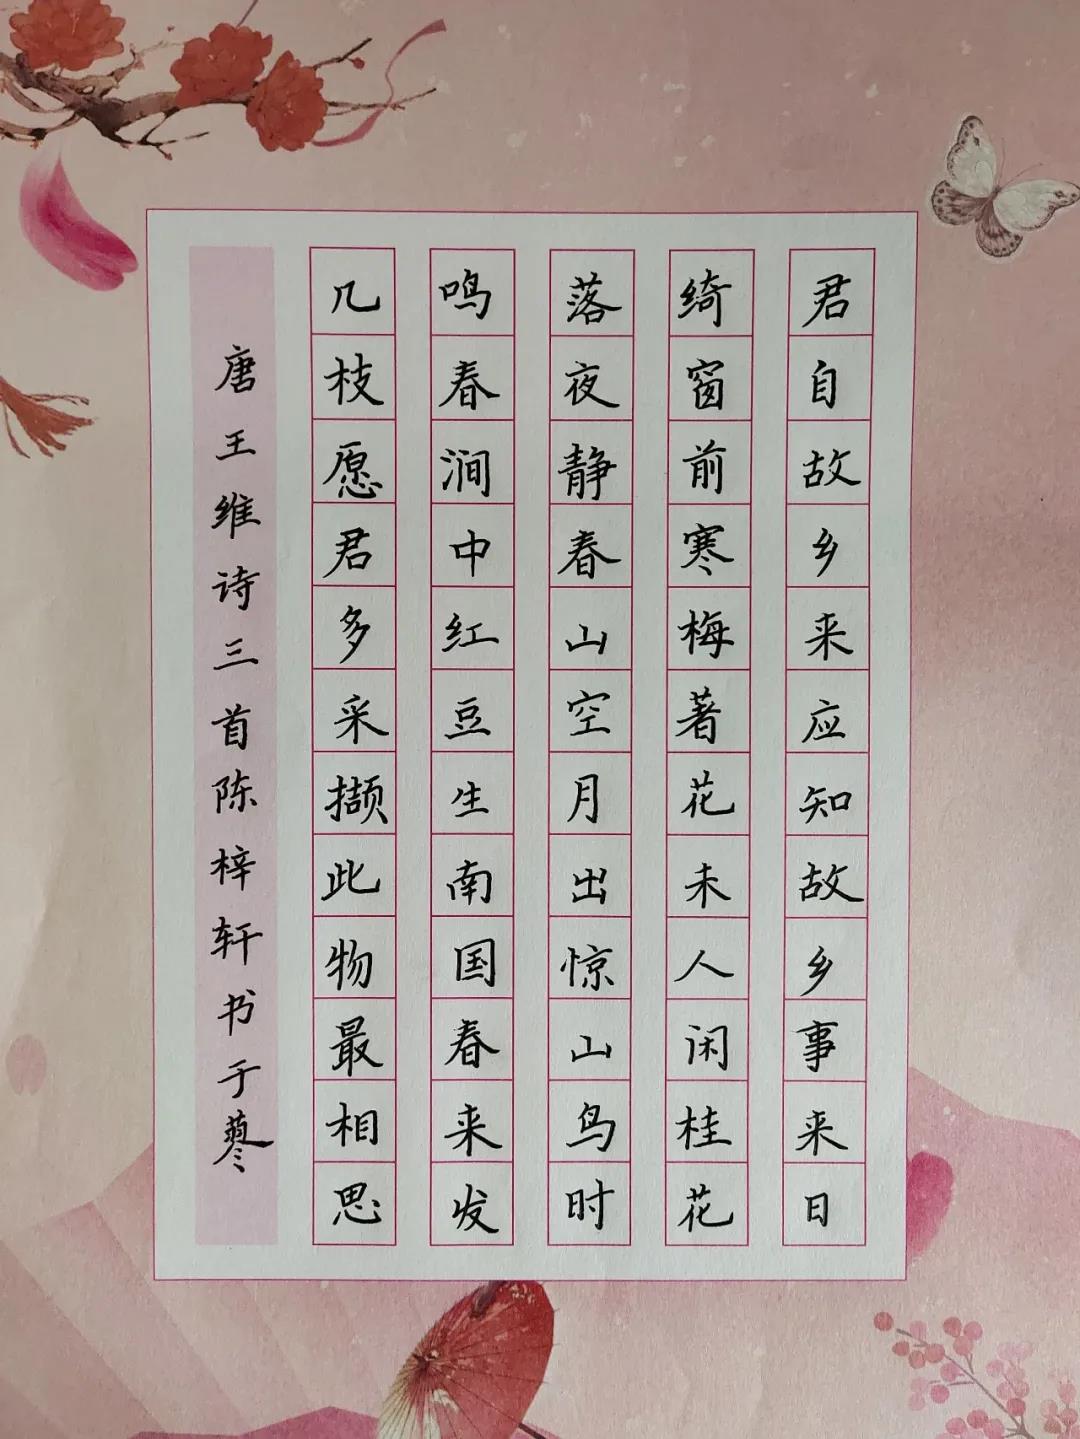 君自故乡来应知故乡事来日
绮窗前寒梅著花未人闲桂花
落夜静春山空月出惊山鸟时
鸣春涧中红豆生南国春来发
几枝愿君多采撷此物最相思
唐王维诗三首陈梓轩书于